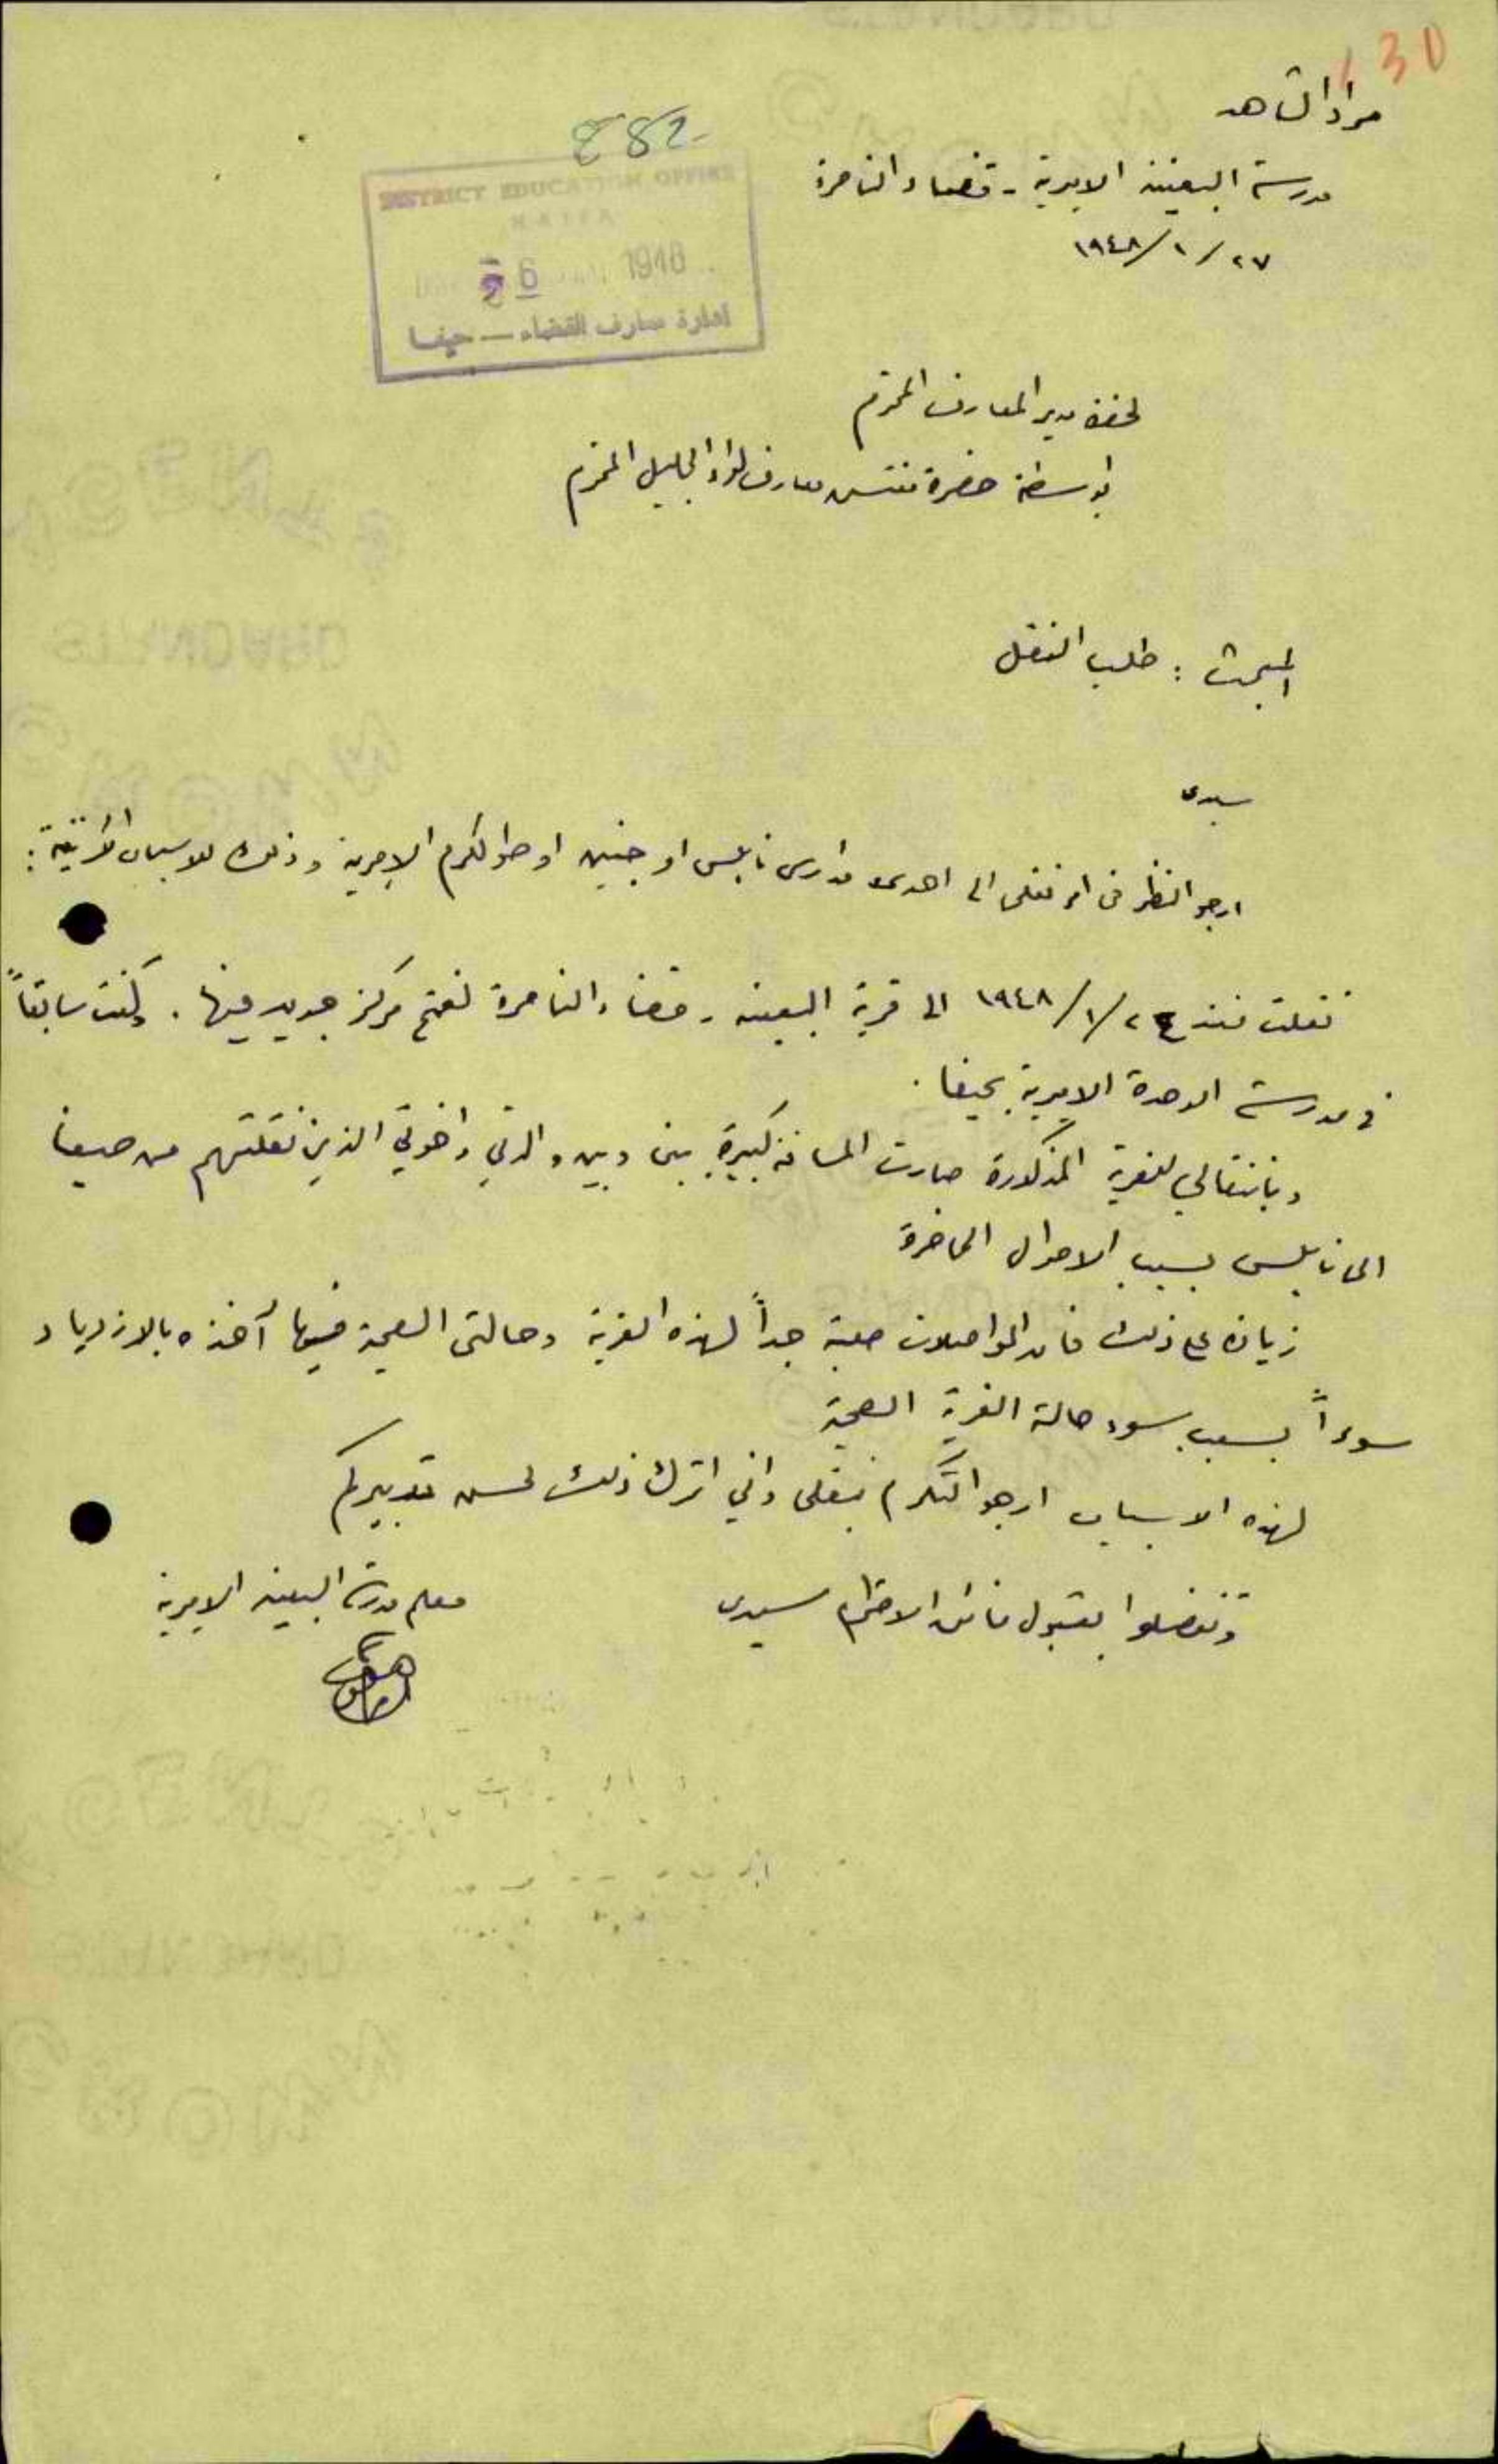 30
مراد الشاهد
مدرسة البعينه الاميرية - قضاء الناصرة
٢٧/١/١٩٤٨
282
DISTRICT EDUCATION OFFICE
HAIFA
6 1948
ادارة معارف القضاء — حيفا
لحضرة مدير المعارف المحترم
بواسطة حضرة مفتش معارف لواء الجليل المحترم
المبحث : طلب النقل
سيدي
ارجو النظر في امر نقلي الى احدى مدارس نابلس او جنين او طولكرم الاميرية وذلك للاسباب الآتية :
نقلت منذ ٢٤/١/١٩٤٨ الى قرية البعينه - قضاء الناصرة لفتح مركز جديد فيها . وكنت سابقاً
في مدرسة الوحدة الاميرية بحيفا .
وبانتقالي للقرية المذكورة صارت المسافة كبيرة بيني وبين والدتي واخوتي الذين نقلتهم من حيفا
الى نابلس بسبب الاحوال الحاضرة
زيادة على ذلك فان المواصلات صعبة جداً لهذه القرية وحالتي الصحية فيها آخذه بالازدياد
سوءاً بسبب سوء حالة القرية الصحية
لهذه الاسباب ارجو التكرم بنقلي واني اترك ذلك لحسن تدبيركم
وتفضلوا بقبول فائق الاحترام سيدي
معلم مدرسة البعينه الاميرية